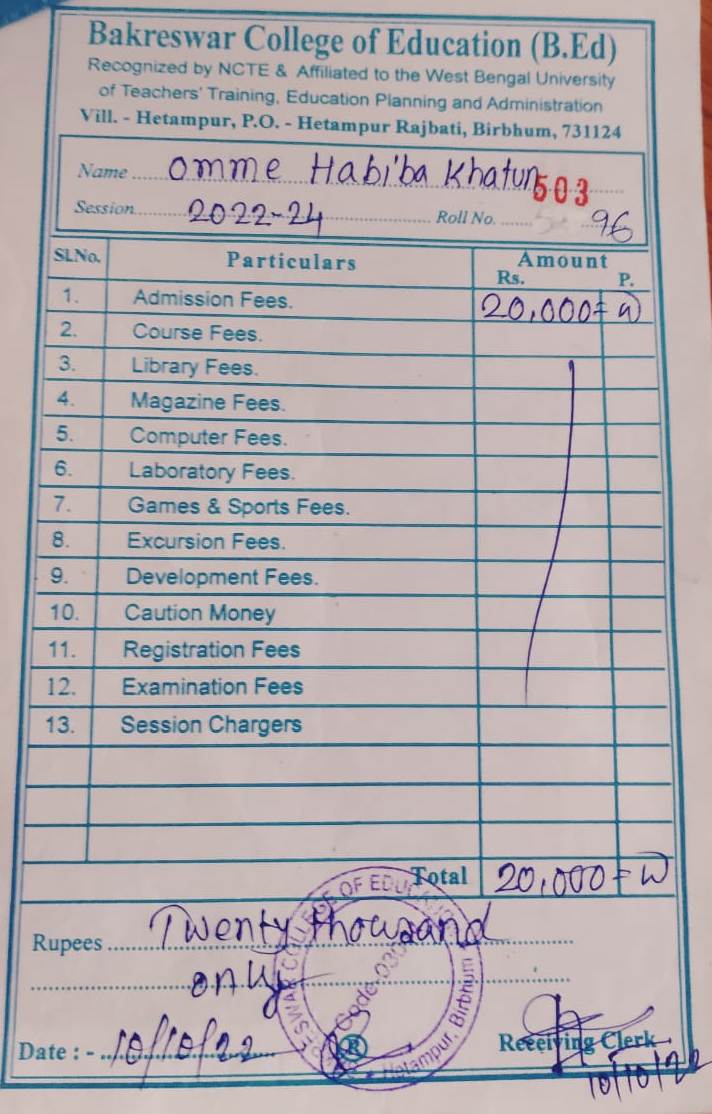 Bakreswar College of Education (B.Ed)
Recognized by NCTE & Affiliated to the West Bengal University
of Teachers' Training, Education Planning and Administration
Vill. - Hetampur, P.O. - Hetampur Rajbati, Birbhum, 731124
Name ..... Omme Habiba Khatun 503
Session..... 2022-24 ..... Roll No. ..... 96
Sl.No. Particulars Amount
Rs. P.
1. Admission Fees. 20,000=
2. Course Fees.
3. Library Fees.
4. Magazine Fees.
5. Computer Fees.
6. Laboratory Fees.
7. Games & Sports Fees.
8. Excursion Fees.
9. Development Fees.
10. Caution Money
11. Registration Fees
12. Examination Fees
13. Session Chargers
Total 20,000=
Rupees ..... Twenty thousand
only
Date : - ..... 10/10/22 ® Receiving Clerk
10/10/22
BAKRESWAR COLLEGE OF EDUCATION
Hetampur, Birbhum